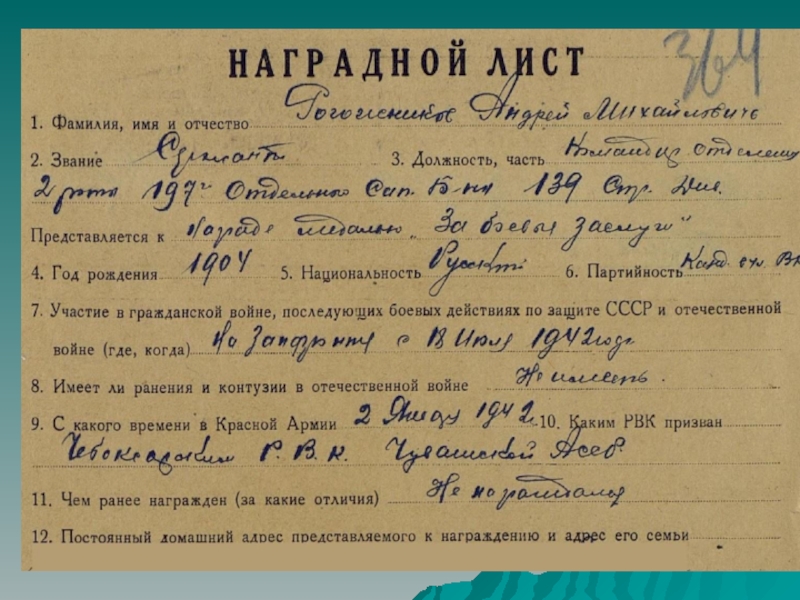 364
НАГРАДНОЙ ЛИСТ
1. Фамилия, имя и отчество Рогожников Андрей Михайловичь
2. Звание Сержант 3. Должность, часть Командир отделения
2 роты 197го Отдельного Сап. Б-на 139 Стр. Див.
Представляется к награде медалью „За боевые заслуги"
4. Год рождения 1904 5. Национальность Русский 6. Партийность Канд. чл. ВК
7. Участие в гражданской войне, последующих боевых действиях по защите СССР и отечественной
войне (где, когда) На Запфронте с 18 Июля 1942 года
8. Имеет ли ранения и контузии в отечественной войне Не имееть.
9. С какого времени в Красной Армии 2 1942 10. Каким РВК призван
Чебоксарским Р.В.К. Чувашской Асср
11. Чем ранее награжден (за какие отличия) Не награждался
12. Постоянный домашний адрес представляемого к награждению и адрес его семьи